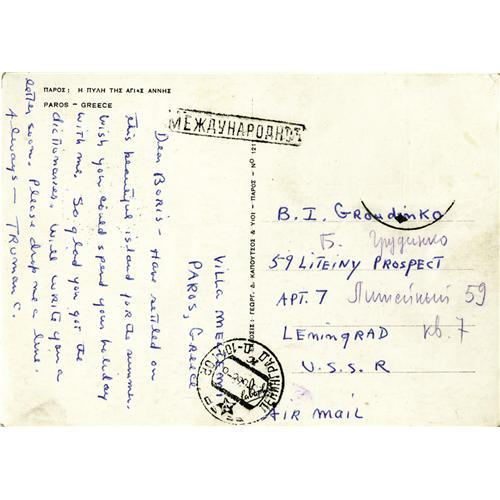 ΠΑΡΟΣ: Η ΠΥΛΗ ΤΗΣ ΑΓΙΑΣ ΑΝΝΗΣ
PAROS - GREECE
МЕЖДУНАРОДНОЕ
Villa Mel
PAROS, Greece
Dear Boris - Have settled on
this beautiful island for the summer.
Wish you could spend your holiday
with me. So glad you got the
dictionaries. Will write you a
letter soon. Please drop me a line.
Always - Truman C.
ΓΕΩΡΓ. Δ. ΚΑΠΟΥΤΣΟΣ & ΥΙΟΙ - ΠΑΡΟΣ - Νο 121
B. I. Groudinko
Б. Грудинко
59 Liteiny Prospect
APT. 7 Литейный 59
Leningrad кв. 7
U.S.S.R
AIR MAIL
ЛЕНИНГРАД